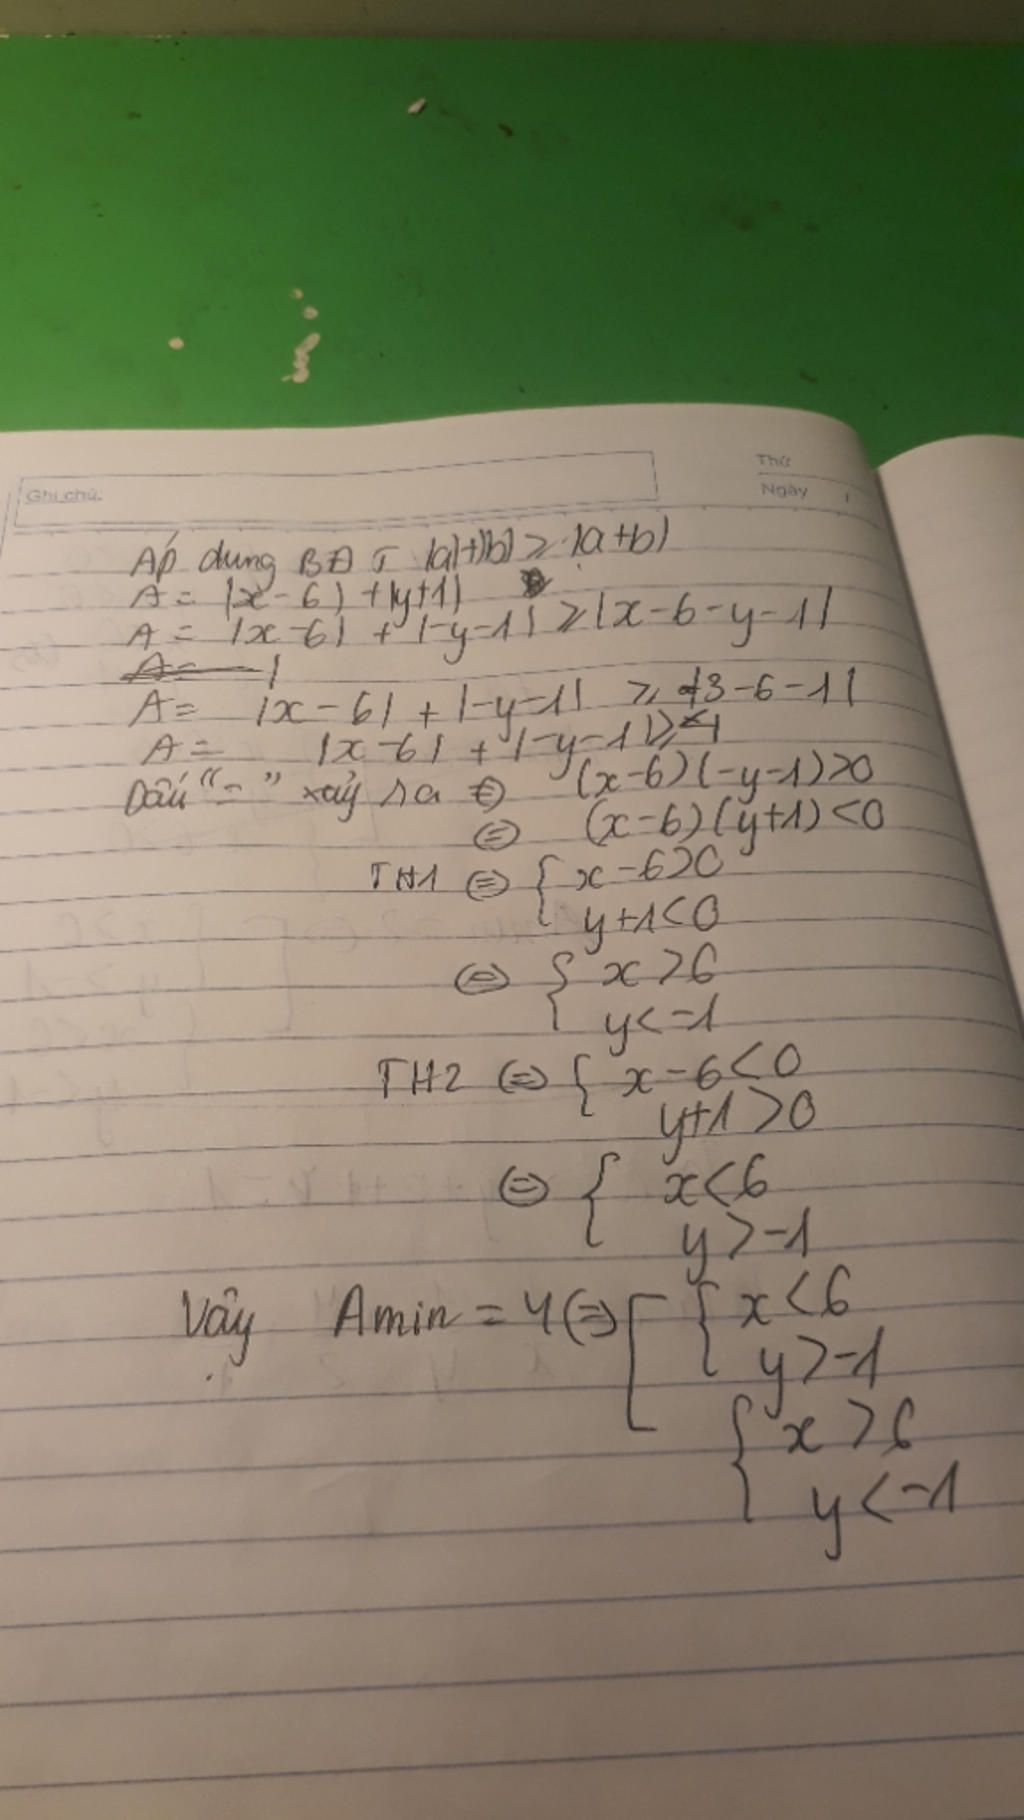 Thứ
Ghi chú:
Ngày
Áp dụng BĐT |a|+|b| ≥ |a+b|
A = |x-6| + |y+1|
A = |x-6| + |-y-1| ≥ |x-6-y-1|
A = |x-6| + |-y-1| ≥ |3-6-1|
A = |x-6| + |-y-1| ≥ 4
Dấu "=" xảy ra ⇔ (x-6)(-y-1)>0
⇔ (x-6)(y+1)<0
TH1 ⇔ { x-6>0
y+1<0
⇔ { x>6
y<-1
TH2 ⇔ { x-6<0
y+1>0
⇔ { x<6
y>-1
Vây Amin = 4 ⇔ [ { x<6
y>-1
{ x>6
y<-1